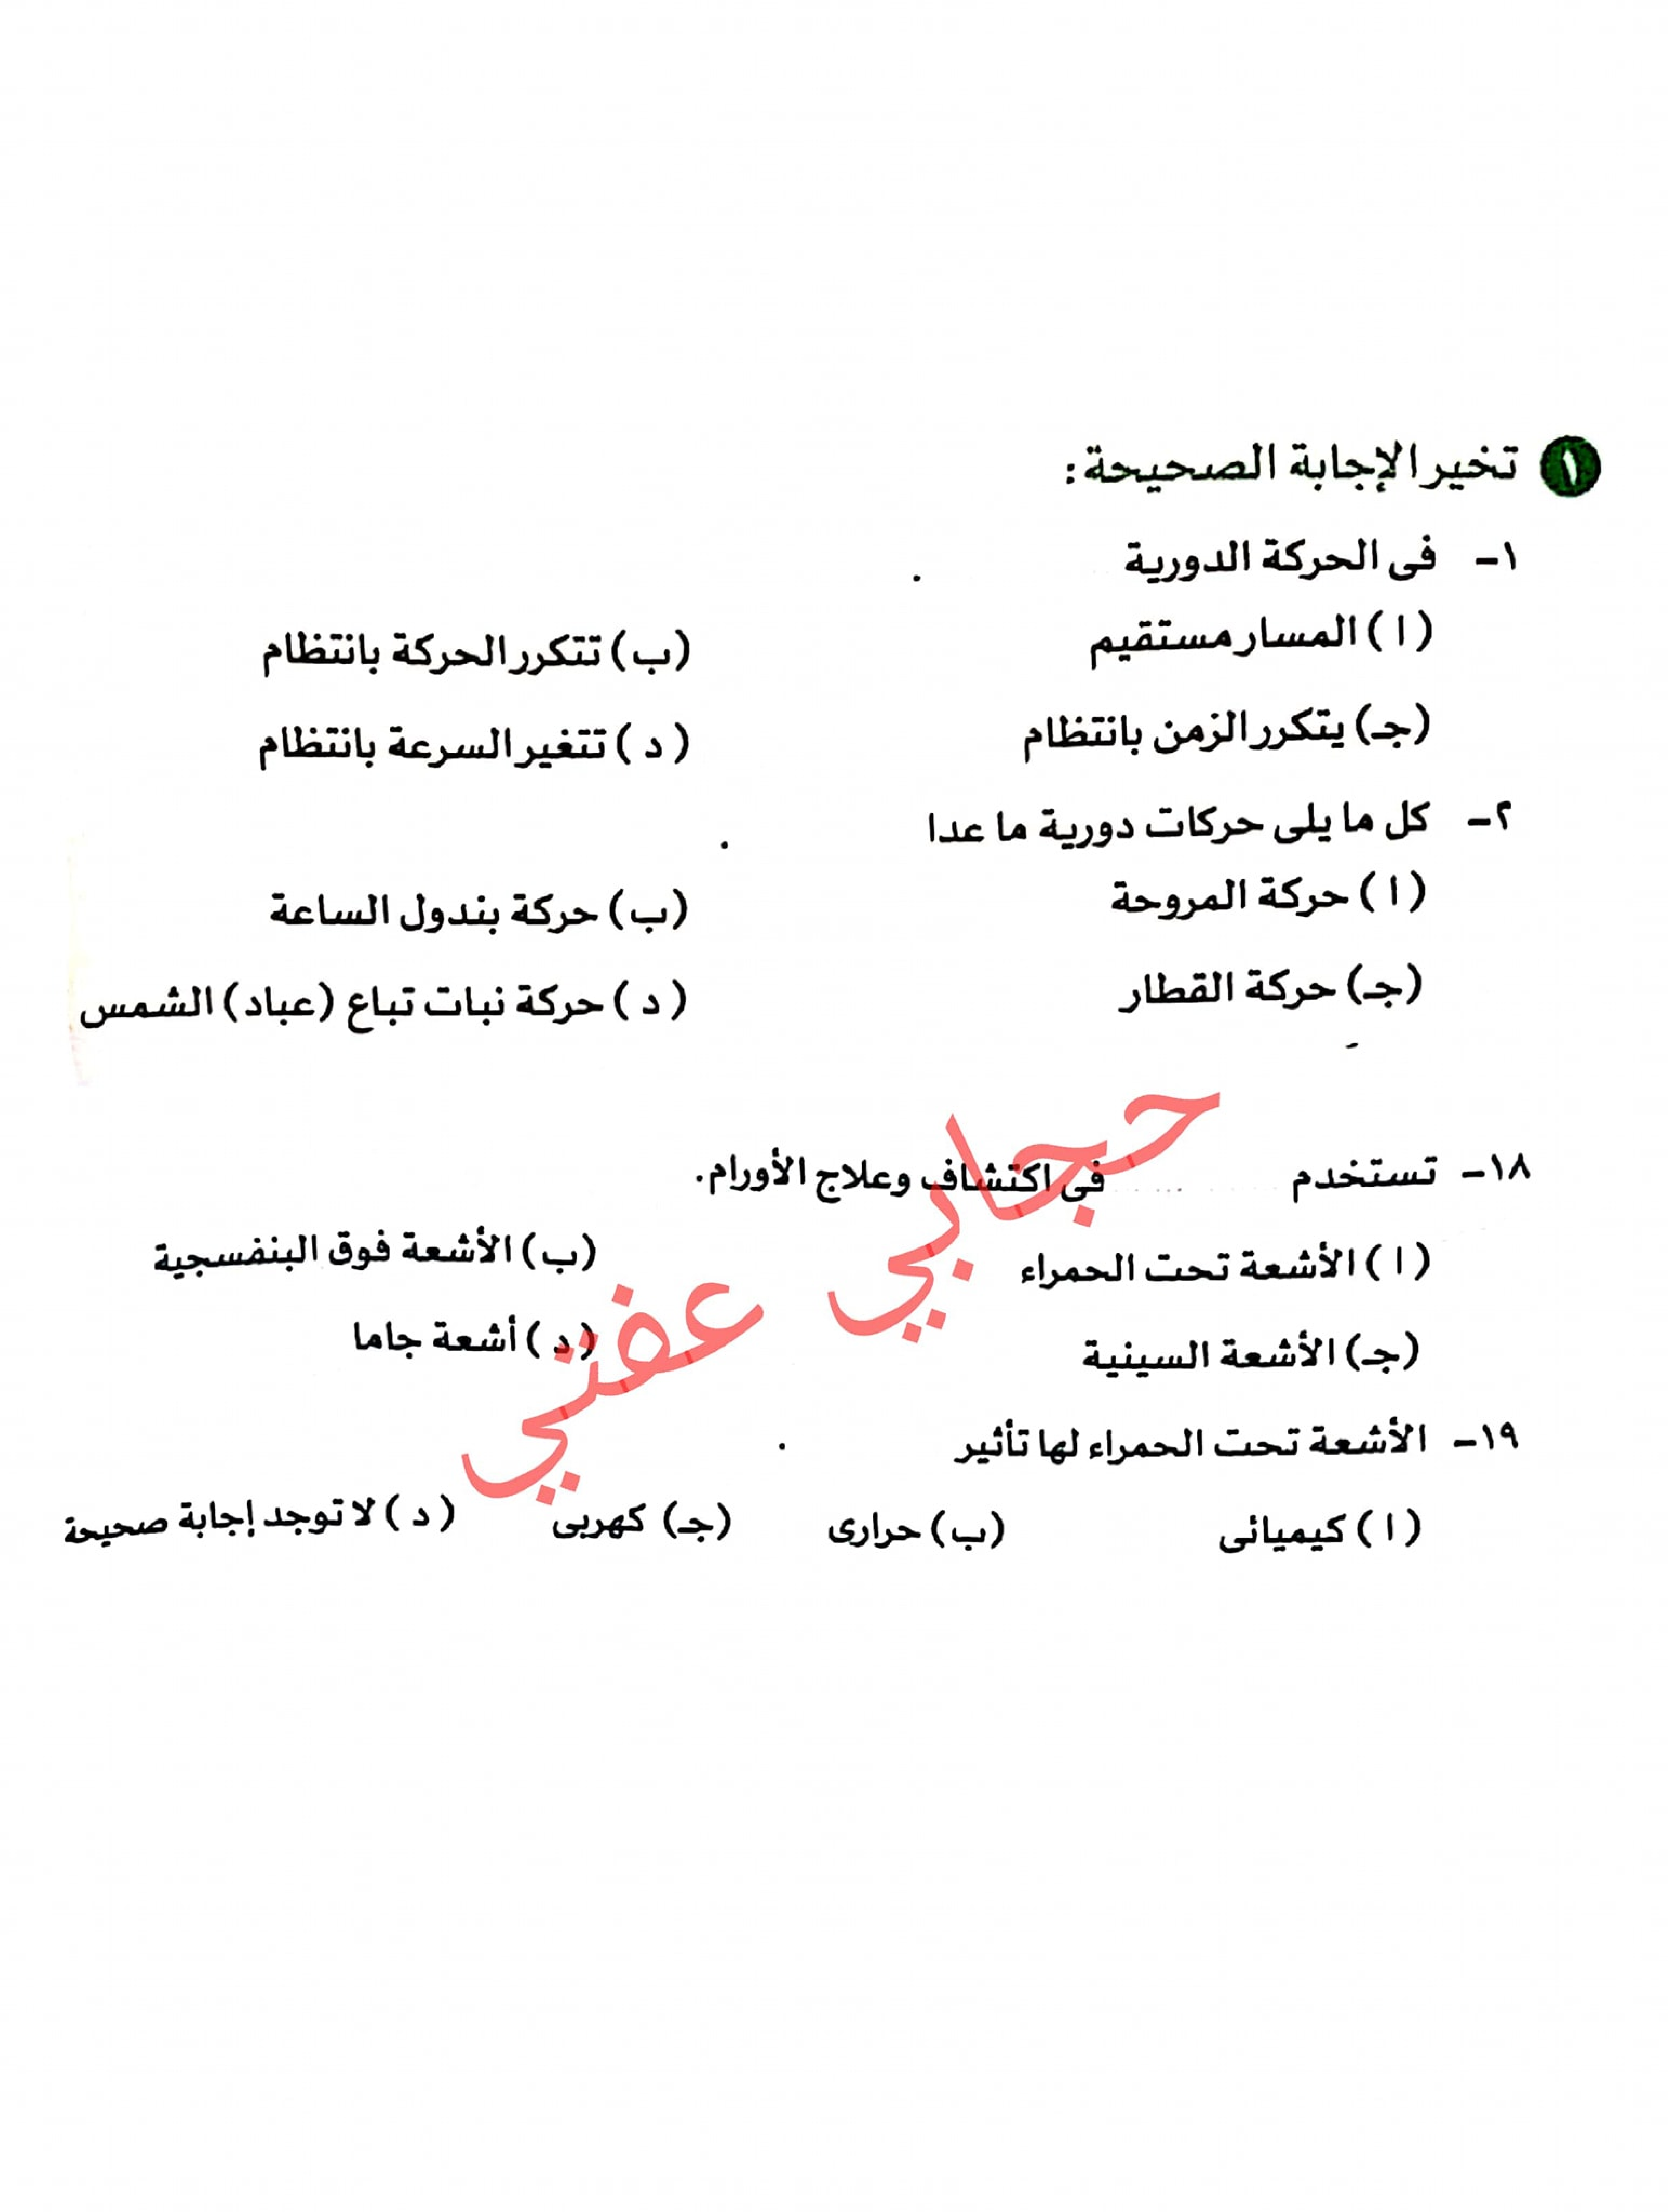 ١ تخير الإجابة الصحيحة:
١- فى الحركة الدورية .
( ا ) المسار مستقيم (ب) تتكرر الحركة بانتظام
(جـ) يتكرر الزمن بانتظام ( د ) تتغير السرعة بانتظام
٢- كل ما يلى حركات دورية ما عدا .
( ا ) حركة المروحة (ب) حركة بندول الساعة
(جـ) حركة القطار ( د ) حركة نبات تباع (عباد) الشمس
١٨- تستخدم ..... فى اكتشاف وعلاج الأورام.
( ا ) الأشعة تحت الحمراء (ب) الأشعة فوق البنفسجية
(جـ) الأشعة السينية ( د ) أشعة جاما
١٩- الأشعة تحت الحمراء لها تأثير .
( ا ) كيميائى (ب) حرارى (جـ) كهربى ( د ) لا توجد إجابة صحيحة
حجابي عفتي